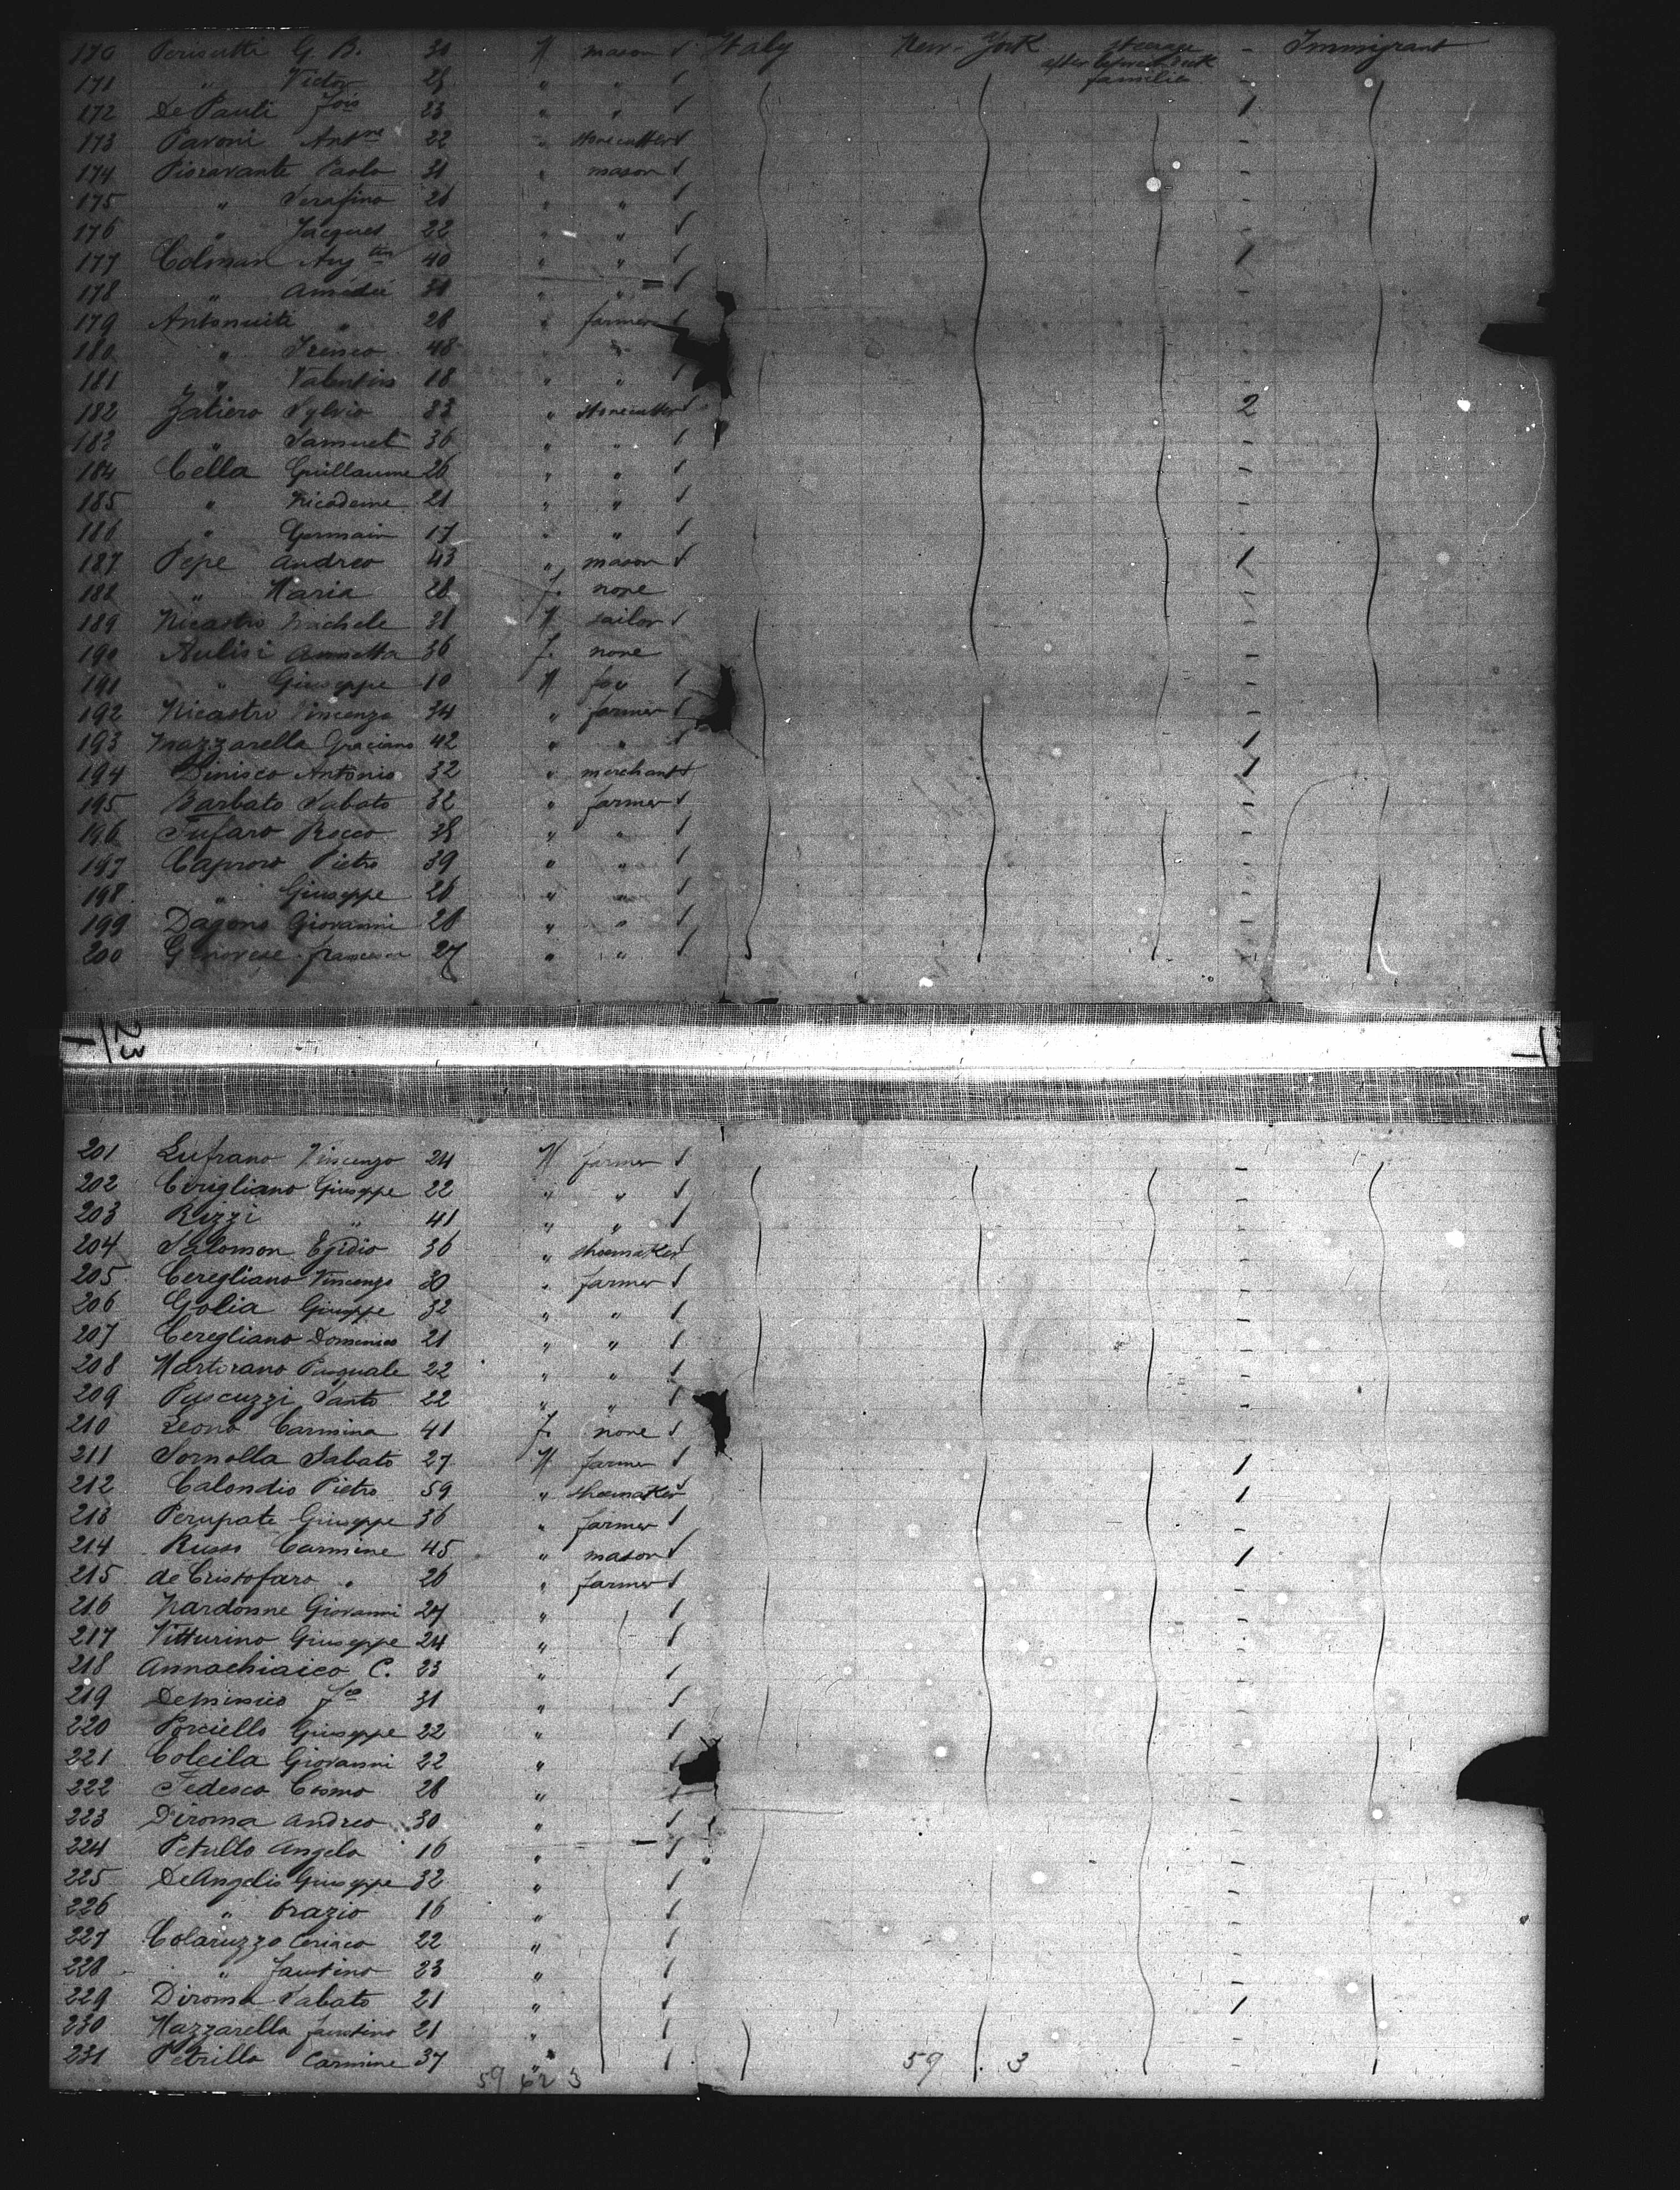 170 Perisutti G B. 30 M mason Italy New-York steerage after between deck families - Immigrant
171 " Victor 28 " " -
172 De Pauli Jois 23 " " 1
173 Pavoni Antne 22 " stonecutter -
174 Pioravante Paolo 31 " mason -
175 " Serafino 26 " " -
176 " Jacques 22 " " -
177 Colman Augtin 40 " " 1
178 " Amédée 31 " " -
179 Antoniutti " 28 " farmer -
180 " Ireneo 48 " " -
181 " Valentin 18 " " -
182 Zatiero Sylvio 33 " stonecutter 2
183 " Samuel 36 " " -
184 Cella Guillaume 26 " " -
185 " Nicodeme 21 " " -
186 " Germain 17 " " -
187 Pepe Andrea 43 " mason 1
188 " Maria 28 f. none -
189 Nicastro Michele 31 M sailor -
190 Aulisi Annetta 36 f. none -
191 " Giuseppe 10 M -
192 Nicastro Vincenzo 34 " farmer -
193 Mazzarella Graciano 42 " " 1
194 Dinisco Antonio 32 " merchant 1
195 Barbato Sabato 32 " farmer -
196 Tufaro Rocco 38 " " -
197 Caproro Pietro 39 " " -
198 " Giuseppe 26 " " -
199 Dagono Giovanni 28 " " -
200 Genovese francesco 27 " " -
201 Lufrano Vincenzo 24 M farmer -
202 Cerigliano Giuseppe 22 " " -
203 Rizzi " 41 " " -
204 Salomon Egidio 36 " shoemaker -
205 Ceregliano Vincenzo 30 " farmer -
206 Golia Giuseppe 32 " " -
207 Ceregliano Domenico 21 " " -
208 Martorano Pasquale 22 " " -
209 Pascuzzi Santo 22 " " -
210 Leono Carmina 41 f. none -
211 Sornolla Sabato 27 M farmer 1
212 Calondio Pietro 59 " shoemaker 1
213 Perupato Giuseppe 36 " farmer -
214 Russo Carmine 45 " mason 1
215 de Cristofaro " 26 " farmer -
216 Nardonne Giovanni 27 " -
217 Vitturino Giuseppe 24 " -
218 Annachiaico C. 23 " -
219 Deminico fco 31 " -
220 Porciello Giuseppe 22 " -
221 Coleila Giovanni 22 " -
222 Tedesco Cosmo 28 " -
223 Diroma Andrea 30 " -
224 Petullo Angelo 16 " -
225 DeAngelis Giuseppe 32 " -
226 " Orazio 16 " -
227 Colaruzzo Ceriaco 22 " -
228 " Faustino 23 " -
229 Diroma Sabato 21 " 1
230 Mazzarella Faustino 21 " -
231 Petrillo Carmine 37 " -
59 62 3 59 . 3